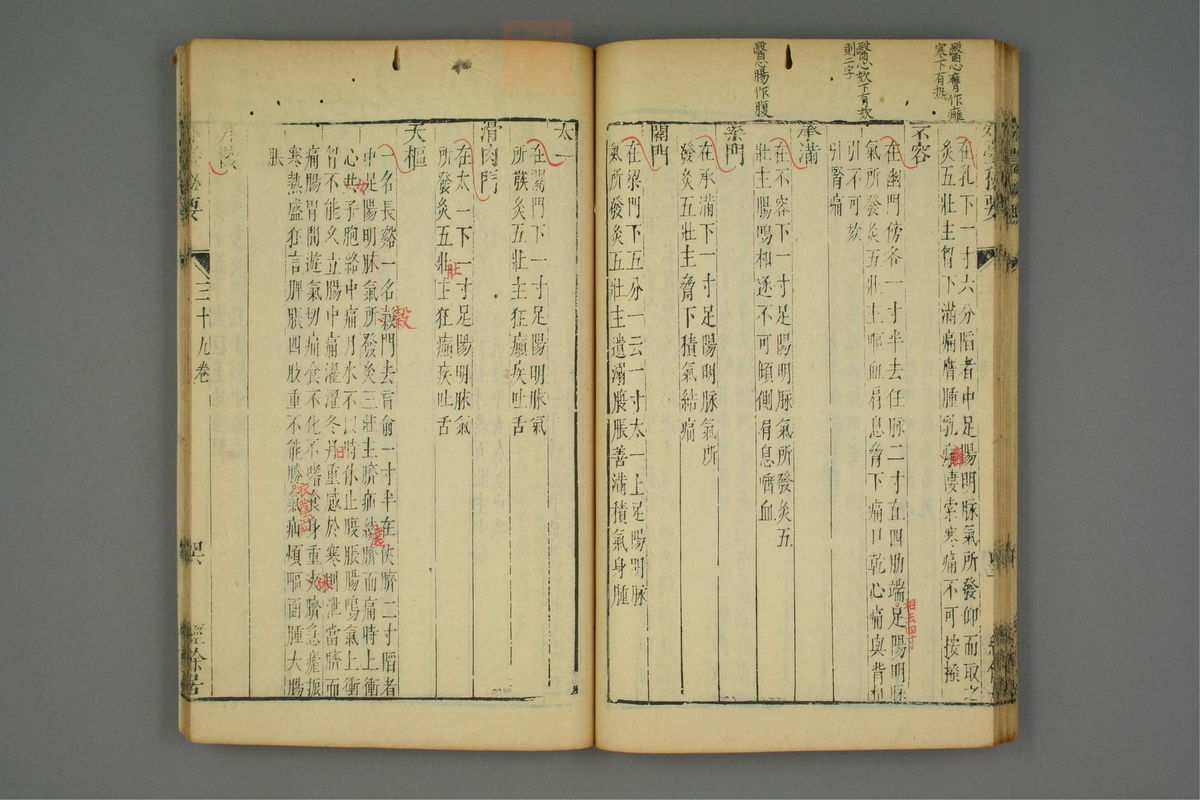 醫心膺作癰
寒下有熱
醫心欬下有欬
則二字
醫心腸作腹
在乳下一寸六分䧟者中足陽明脉氣所發仰而取之
灸五壯主胷下滿痛膺腫乳癰悽索寒痛不可按搔
不容
在幽門傍各一寸半去任脉二寸直四肋端足陽明脉
相去四寸
氣所發灸五壯主嘔血肩息脅下痛口乾心痛與背相
引不可欬
引腎痛
承滿
在不容下一寸足陽明脉氣所發灸五
壯主腸鳴相逐不可傾倒肩息唾血
梁門
在承滿下一寸足陽明脉氣所
發灸五壯主脅下積氣結痛
關門
在梁門下五分一云一寸太一上足陽明脉
氣所發灸五壯主遺溺腹脹善滿積氣身腫
太一
在關門下一寸足陽明脉氣
所發灸五壯主狂癲疾吐舌
滑肉門
在太一下一寸足陽明脉氣
所發灸五壯主狂癲疾吐舌
天樞
一名長谿一名穀門去肓俞一寸半在俠臍二寸䧟者
穀
中足陽明脉氣所發灸三壯主臍疝繞臍而痛時上衝
心女子胞絡中痛月水不以時休止腹脹腸鳴氣上衝
胷不能久立腸中痛濯濯冬日重感於寒則泄當臍而
痛腸胃間遊氣切痛食不化不嗜食身重俠臍急瘧振
寒熱盛狂言胕脹四肢重不能勝衣
氣疝煩嘔面腫大腸
脹
三十九卷
經餘居